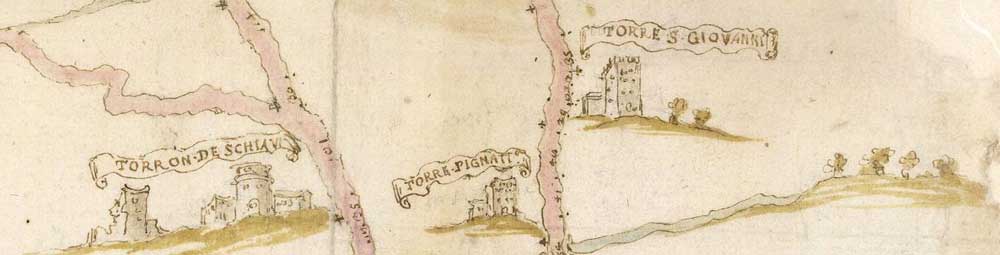 TORRE S. GIOVANNI
TORRON. DE SCHIAVI
TORRE. PIGNATI.